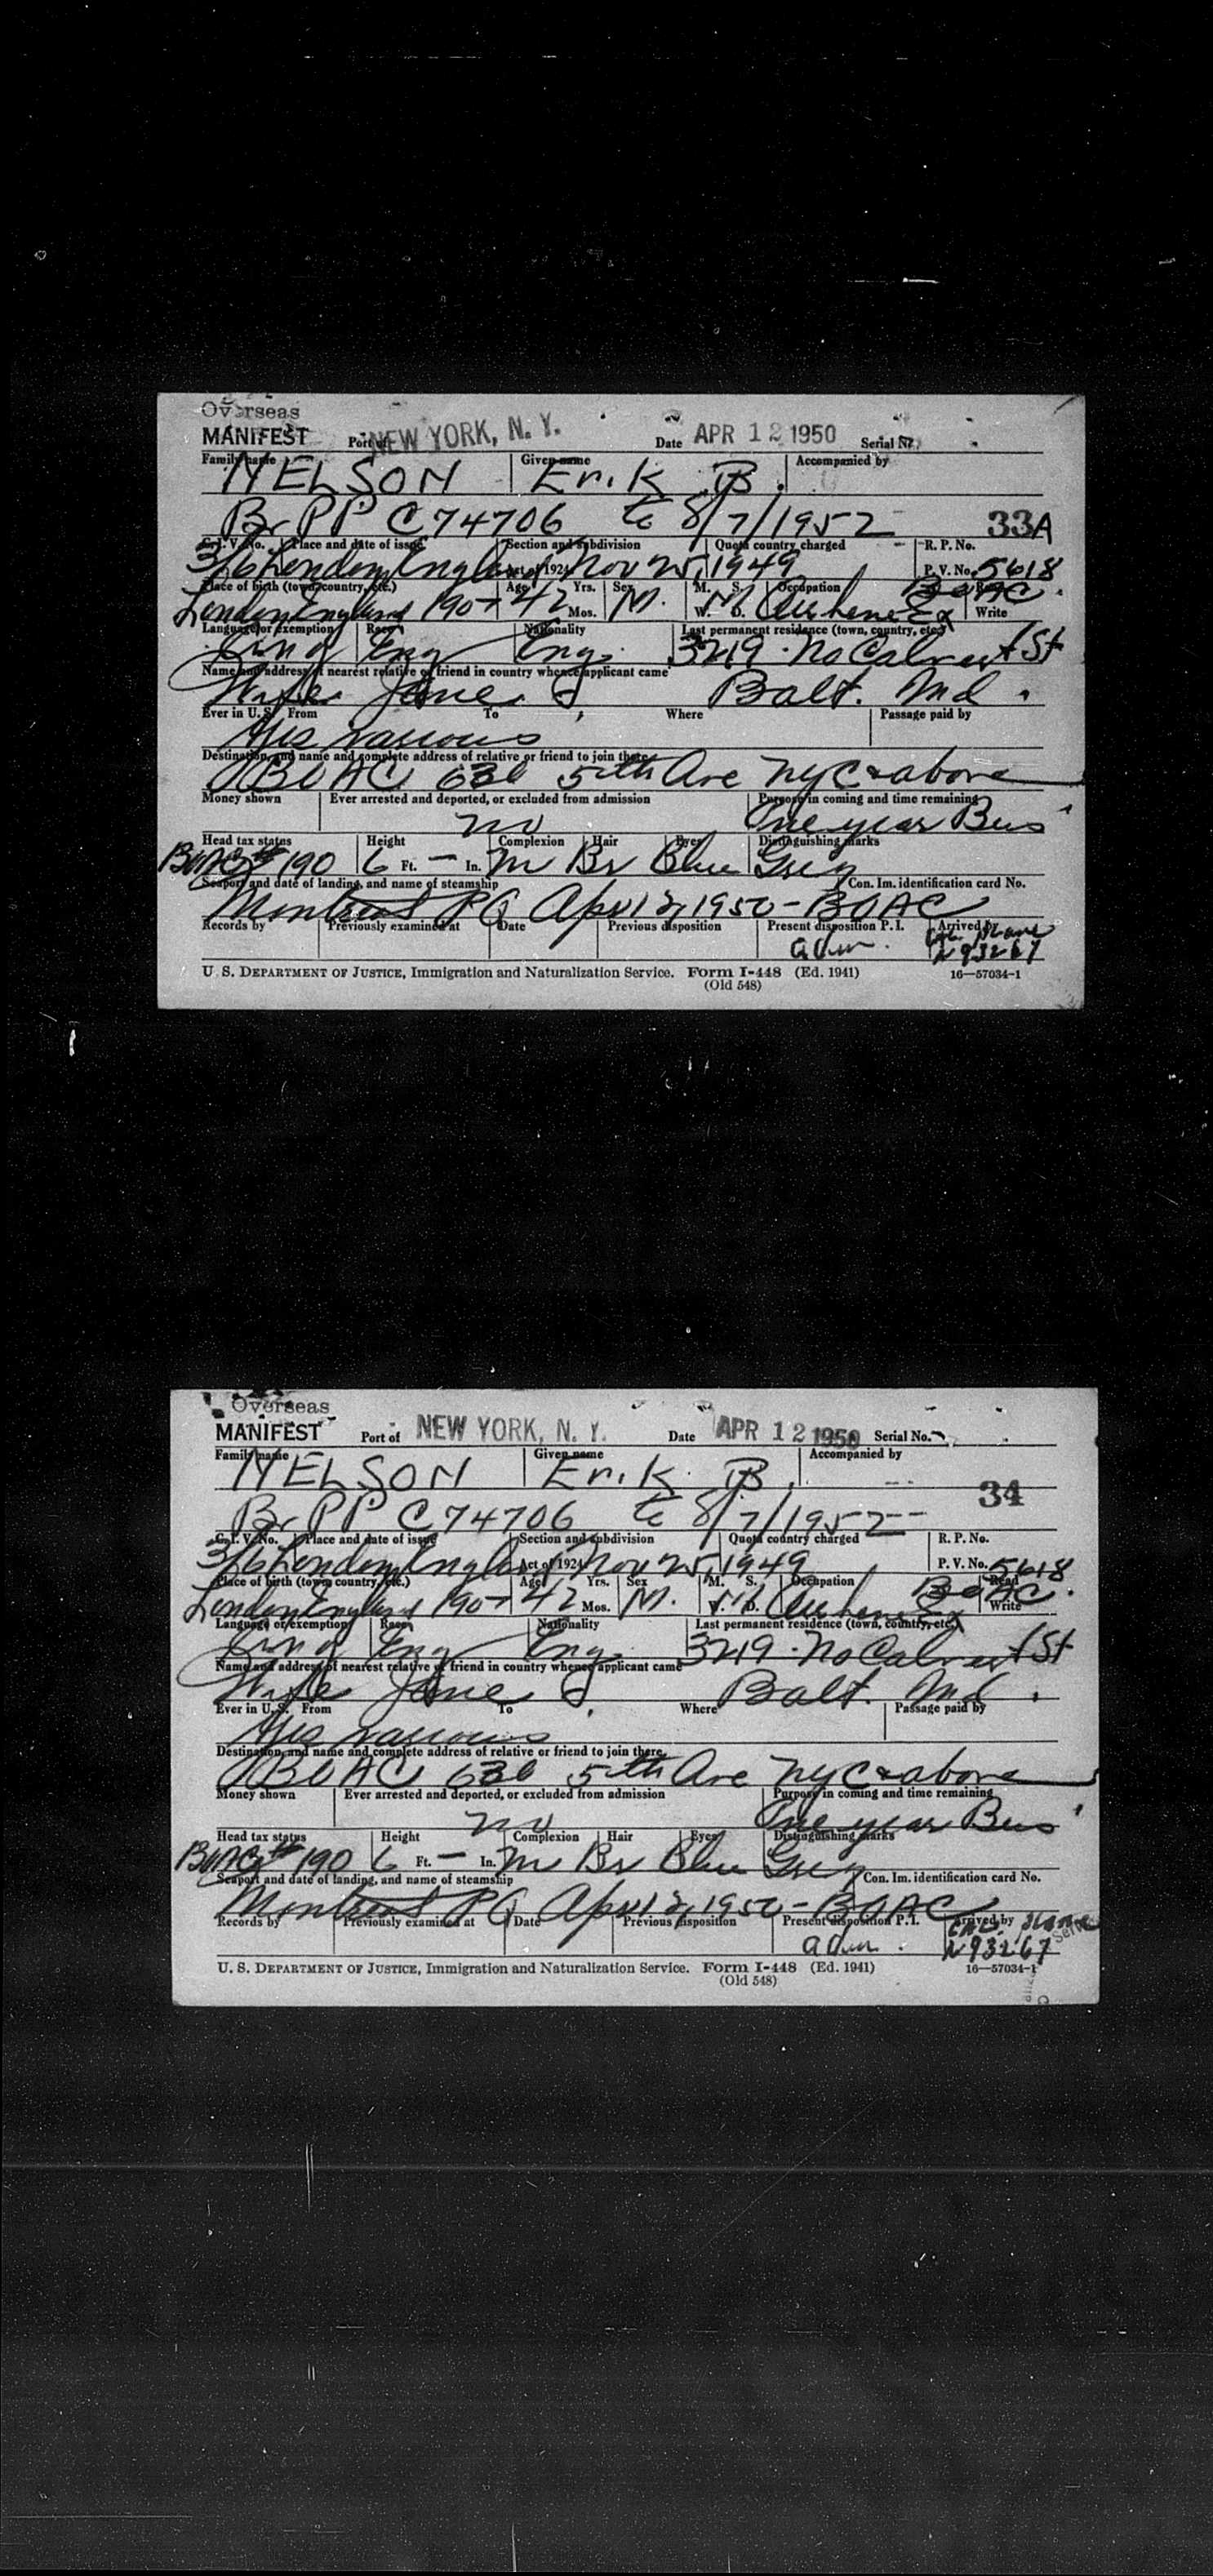 Overseas
MANIFEST Port of NEW YORK, N. Y. Date APR 12 1950 Serial No.
Family name NELSON Given name Erik B. Accompanied by
Br PP C74706 to 8/7/1952 33A
C. I. V. No. Place and date of issue Section and subdivision Quota country charged R. P. No.
3/6 London England Act of 1924 Nov 25, 1949 P. V. No. 5618
Place of birth (town, country, etc.) Age Yrs. Sex M. S. Occupation Read
London England 1907 42 Mos. M. M W. D. Airline Ex BOAC. Write
Language or exemption Race Nationality Last permanent residence (town, country, etc.)
Eng Eng Eng. 3219 No Calvert St
Name and address of nearest relative or friend in country whence applicant came
Wife Jane Balt. Md.
Ever in U. S. From To Where Passage paid by
Yes various
Destination, and name and complete address of relative or friend to join there
BOAC 630 5th Ave NYC & above
Money shown Ever arrested and deported, or excluded from admission Purpose in coming and time remaining
no One year Bus
Head tax status Height Complexion Hair Eyes Distinguishing marks
190 6 Ft. — In. M Br Blue Grey
Seaport and date of landing, and name of steamship Con. Im. identification card No.
Montreal PQ Apr 12, 1950 - BOAC
Records by Previously examined at Date Previous disposition Present disposition P. I. Arrived by
adm. Plane
N93267
U. S. DEPARTMENT OF JUSTICE, Immigration and Naturalization Service. Form I-448 (Ed. 1941) 16—57034-1
(Old 548)
Overseas
MANIFEST Port of NEW YORK, N. Y. Date APR 12 1950 Serial No.
Family name NELSON Given name Erik B. Accompanied by
Br PP C74706 to 8/7/1952 34
C. I. V. No. Place and date of issue Section and subdivision Quota country charged R. P. No.
3/6 London England Act of 1924 Nov 25, 1949 P. V. No. 5618
Place of birth (town, country, etc.) Age Yrs. Sex M. S. Occupation Read
London England 1907 42 Mos. M. M W. D. Airline Ex BOAC. Write
Language or exemption Race Nationality Last permanent residence (town, country, etc.)
Eng Eng Eng. 3219 No Calvert St
Name and address of nearest relative or friend in country whence applicant came
Wife Jane Balt. Md.
Ever in U. S. From To Where Passage paid by
Yes various
Destination, and name and complete address of relative or friend to join there
BOAC 630 5th Ave NYC & above
Money shown Ever arrested and deported, or excluded from admission Purpose in coming and time remaining
no One year Bus
Head tax status Height Complexion Hair Eyes Distinguishing marks
190 6 Ft. — In. M Br Blue Grey
Seaport and date of landing, and name of steamship Con. Im. identification card No.
Montreal PQ Apr 12, 1950 - BOAC
Records by Previously examined at Date Previous disposition Present disposition P. I. Arrived by
adm. Plane
N93267
U. S. DEPARTMENT OF JUSTICE, Immigration and Naturalization Service. Form I-448 (Ed. 1941) 16—57034-1
(Old 548)